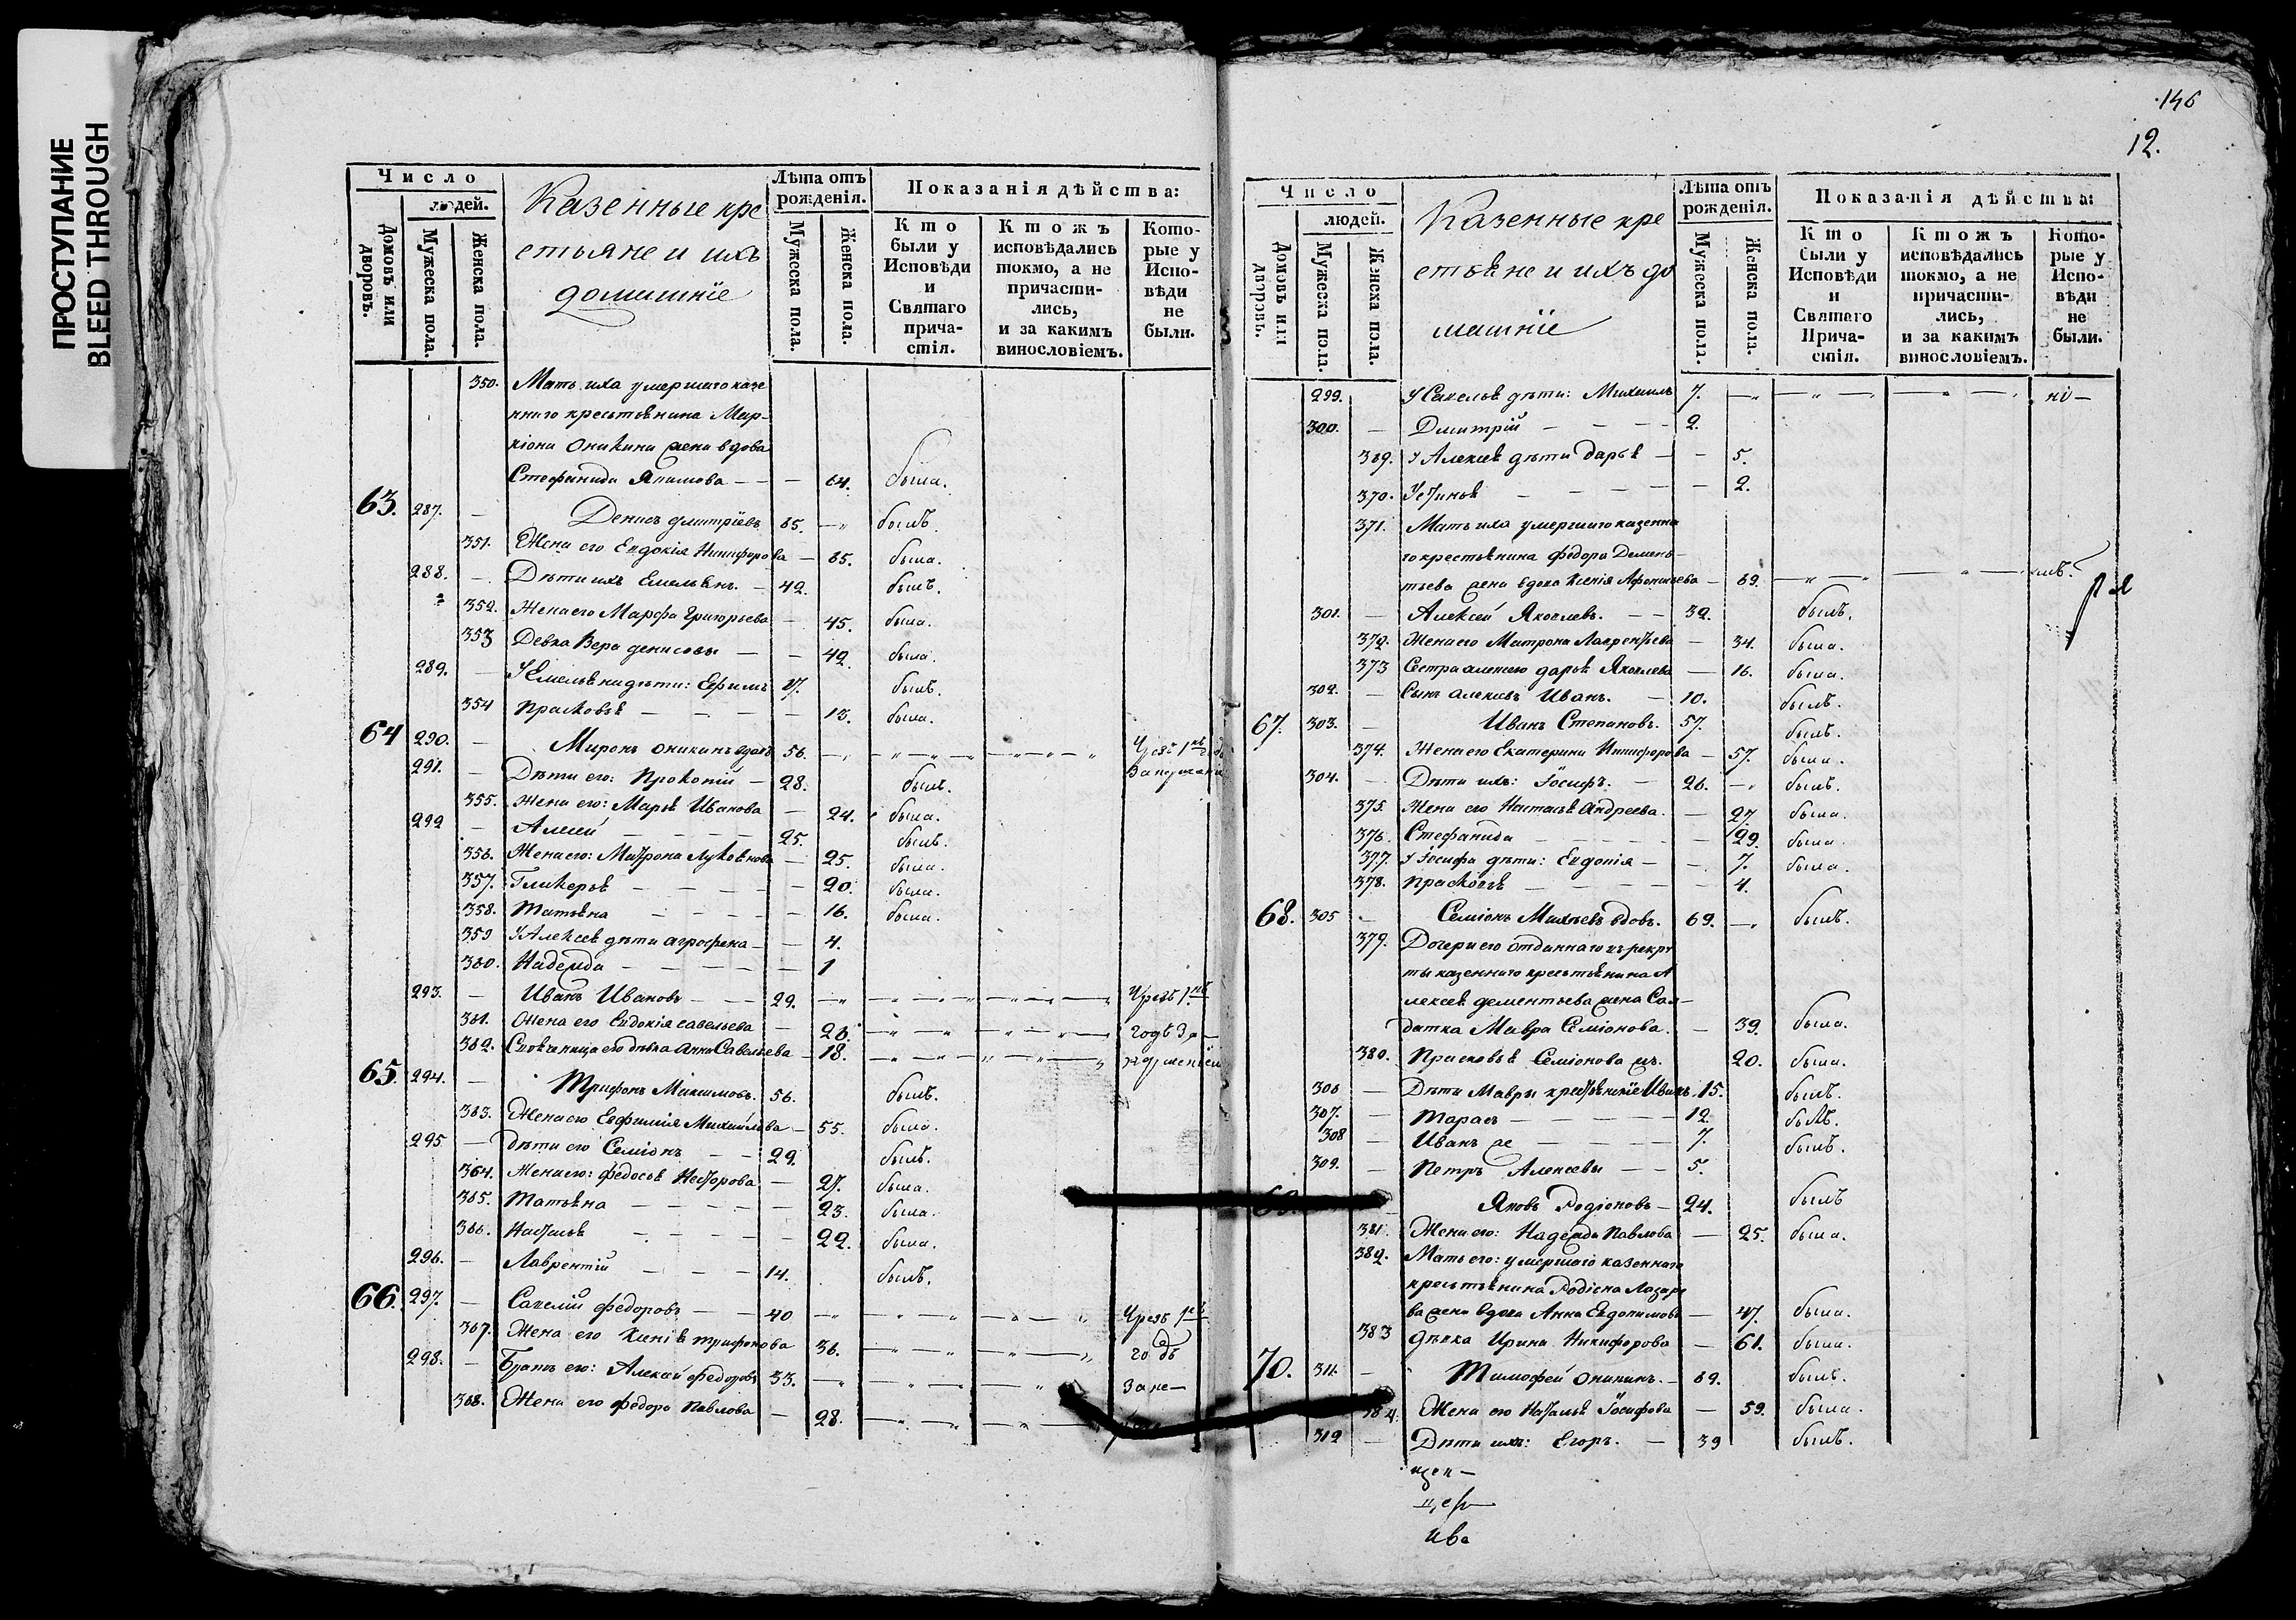 ПРОСТУПАНИЕ
BLEED THROUGH
Число
людей.
Домовъ или дворовъ.
Мужеска пола.
Женска пола.
Казенные кре
стьяне и ихъ
домашнїе
Лѣта отъ рожденія.
Мужеска пола.
Женска пола.
Показанія дѣйства:
Кто были у Исповѣди и Святаго причастія.
Кто жъ исповѣдались токмо, а не причастились, и за какимъ винословіемъ.
Которые у Исповѣди не были.
350. Мать ихъ умершаго казе
ннаго крестьянина Мар-
кіона Оникина жена вдова
Стефанида — — — 64. была.
63. 287. — Денисъ Дмитріевъ 65. — былъ.
351. Жена его Евдокія Никифорова — 65. была.
288. — Дѣти ихъ Емельянъ. — 42. былъ.
352. Жена его Марфа Григорьева — 45. была.
353 Девка Вера Денисова — — 42. была.
289. — У Емельяна дѣти: Ефимъ 17. былъ.
354 Прасковья — — — — 13. была.
64 290. — Миронъ Оникинъ вдовъ 56. —
291. — Дѣти его: Прокопій — 28. былъ.
355. Жена его: Марья Иванова — 24. была.
292 — — — — 25. былъ.
356. Жена его: Матрона — 25. была.
357. Гликерья — — — — 20. была.
358. Татьяна — — — — 16. была.
359 У Алексея дѣти Агрофена — — 4.
360. Надежда — — — — — 1
293. — Иванъ Ивановъ — — 29. — Чрезъ 1
361. Жена его Евдокія Савельева — 26. — годъ за —
362. его дѣвка Анна Савельева — 18.
65. 294. — Трифонъ Максимовъ. 56. былъ.
363. Жена его Евфимія Михайлова — 55. была.
295 — Дѣти его Семіонъ — — 29. былъ.
364. Жена его: Федосья Несторова — 27. была.
365. Татьяна — — — — — 23. была.
366. Наталья — — — — 22. была.
296. — Лаврентій — — — 14. былъ.
66. 297. — Савелій Федоровъ — — 40 — Чрезъ 1
367. Жена его Ксенія Трифонова 36. — годъ
298. — Братъ его: Алексей Федоровъ 33. — За не —
368. Жена его Федора Павлова — 28. —
146
12.
Число
людей.
Домовъ или дворовъ.
Мужеска пола.
Женска пола.
Казенные кре
стьяне и ихъ до
машнїе
Лѣта отъ рожденія.
Мужеска пола.
Женска пола.
Показанія дѣйства:
Кто были у Исповѣди и Святаго Причастія.
Кто жъ исповѣдались токмо, а не причастились, и за какимъ винословіемъ.
Которые у Исповѣди не были.
299. У Савелья дѣти: Михаилъ 7. —
300. — Дмитрій — — — — 2.
369. У Алексея дѣти Дарья — — 5.
370. Устинья — — — — — 2.
371. Мать ихъ умершаго казенна
го крестьянина Федора Демень-
тьева жена вдова Ксенія — 69. —
301. — Алексей Яковлевъ. — — 32. былъ.
372. Жена его Матрона Лаврентьева — 34. была.
373 Сестра Дарья Яковлева — 16. была.
302. — Сынъ Иванъ. — 10. былъ.
67. 303. — Иванъ Степановъ. 57. былъ.
374. Жена его Екатерина Никифорова — 57. была.
304. — Дѣти ихъ: Іосифъ. — 26. — былъ.
375. Жена его Настасья Андреева. — 27. была.
376. Стефанида — — — — — 22. была.
377. У Іосифа дѣти: Евдокія — — 7. была.
378. Прасковья — — — — — 4.
68. 305 — Семіонъ вдовъ. 69. — былъ.
379. Дочери его отданнаго въ рекру
ты казеннаго крестьянина А
лексея Дементьева жена Сал-
датка Мавра Семіонова. — 39. была.
380. Прасковья Семіонова 20. была.
306 — Дѣти Мавры Иванъ. 15. былъ.
307. — Тарасъ — — — — 12. былъ.
308 — Иванъ же — — — — 7. былъ.
309. — Петръ Алексеевы — — 5.
69. Яковъ Родіоновъ — 24. былъ
381. Жена его: Надежда Павлова — 25. была.
382. Мать его: умершаго казеннаго
крестьянина Родіона Лазаре
ва жена вдова Анна Евдокимова — 47. была.
383 Дѣвка Ирина Никифорова — 61. была.
70. 311. — Тимофей Оникинъ. — 69. былъ.
384. Жена его Наталья Іосифова — 59. была.
312 — Дѣти ихъ: Егоръ. — 39 былъ.
Ива